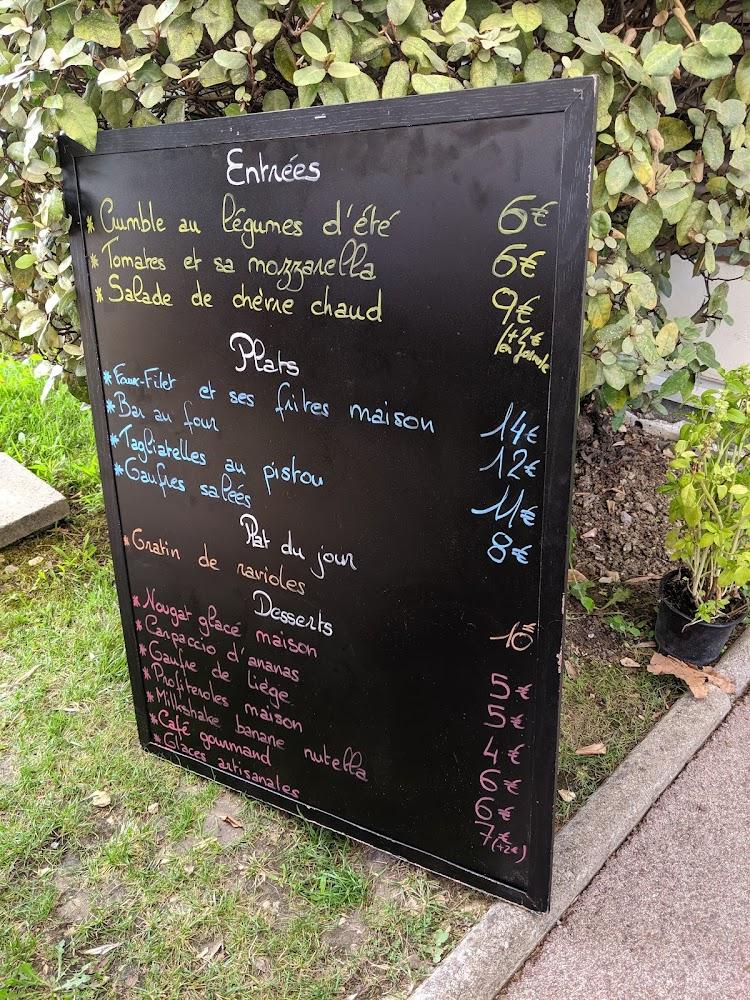 Entrées
* Crumble au légumes d'été 6€
* Tomates et sa mozzarella 6€
* Salade de chèvre chaud 9€
(+2€
en formule
Plats
* Faux-Filet et ses frites maison 14€
* Bar au four 12€
* Tagliatelles au pistou 11€
* Gaufres salées 8€
Plat du jour
* Gratin de ravioles 10€
Desserts
* Nougat glacé maison 5€
* Carpaccio d'ananas 5€
* Gaufre de liège 4€
* Profiteroles maison 6€
* Milkshake banane nutella 6€
* Café gourmand 7€ (+2€)
* Glaces artisanales